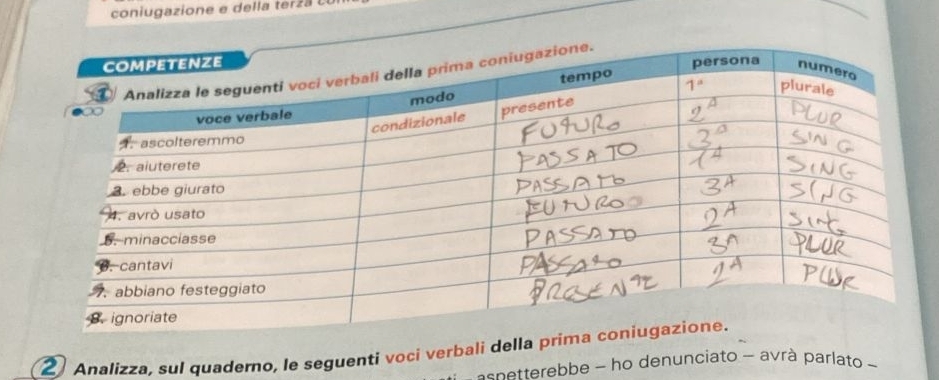 coniugazione e della terza
COMPETENZE
1 Analizza le seguenti voci verbali della prima coniugazione.
voce verbale modo tempo persona numero
1. ascolteremmo condizionale presente 1ª plurale
2. aiuterete FUTURO 2ª PLUR
3. ebbe giurato PASSATO 3ª SING
4. avrò usato PASSATO 1ª SING
5. minacciasse FUTURO 3ª SING
6. cantavi PASSATO 2ª SING
7. abbiano festeggiato PASSATO 3ª PLUR
8. ignoriate PRESENTE 2ª PLUR
2 Analizza, sul quaderno, le seguenti voci verbali della prima coniugazione.
aspetterebbe – ho denunciato – avrà parlato –